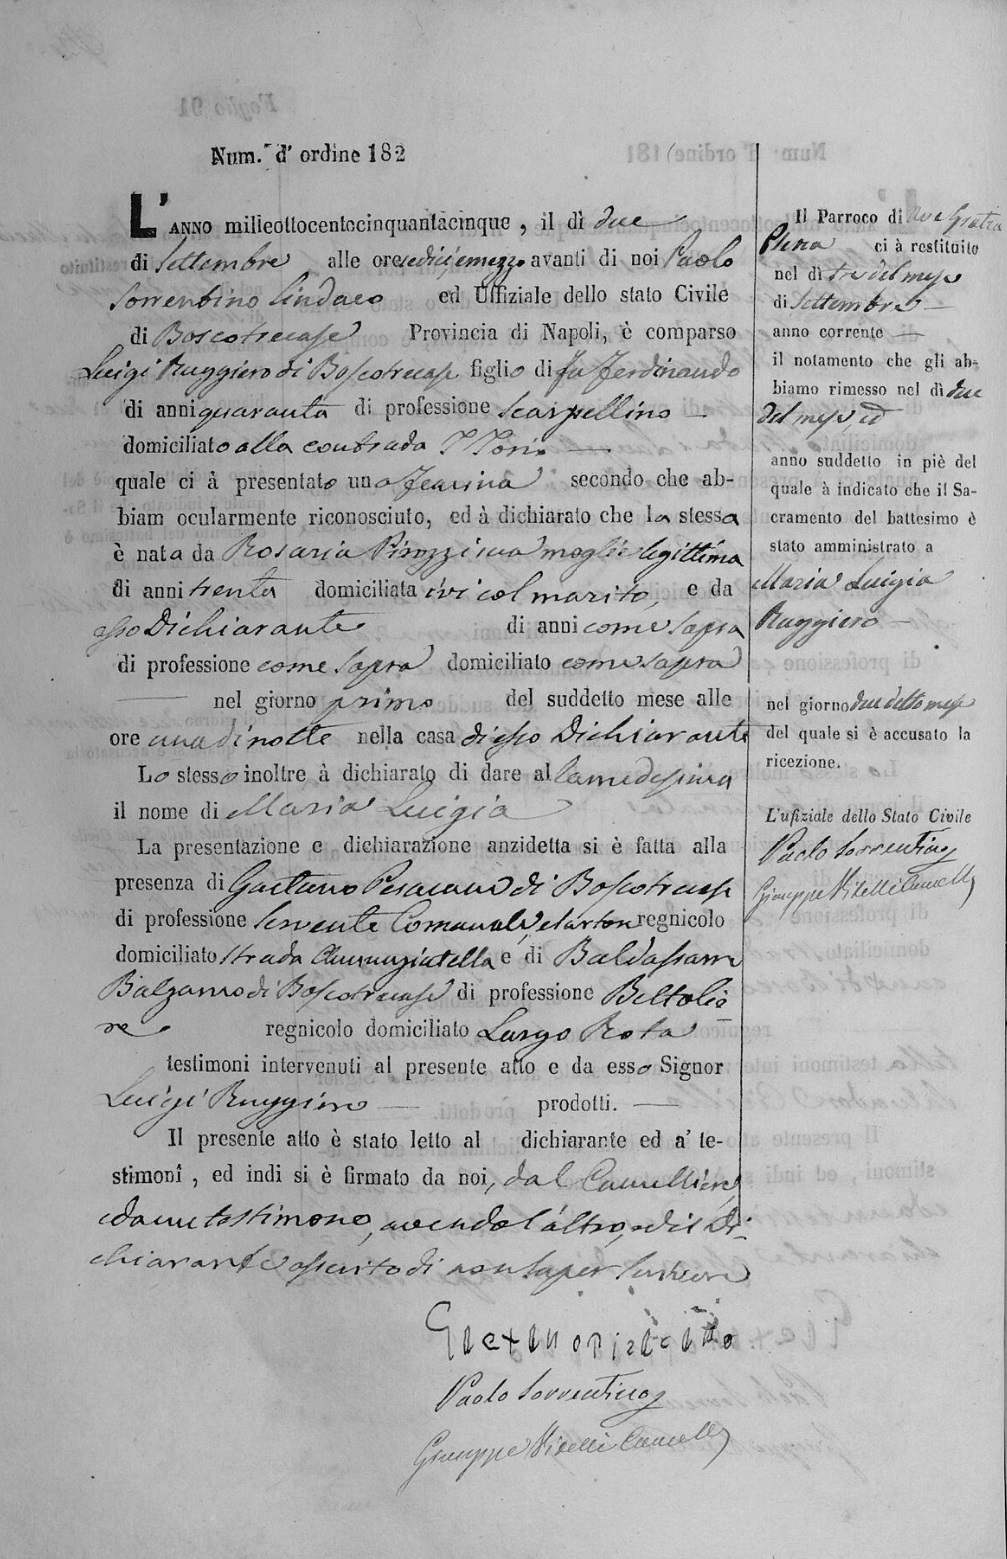 Num. d' ordine 182
L'ANNO milleottocentocinquantacinque, il dì due
di Settembre alle ore sedici, e mezzo avanti di noi Paolo
Sorrentino Sindaco ed Uffiziale dello stato Civile
di Boscotrecase Provincia di Napoli, è comparso
Luigi Ruggiero di Boscotrecase figlio di fu Ferdinando
di anni quaranta di professione Scarpellino
domiciliato alla contrada
quale ci à presentato una Femina secondo che ab-
biam ocularmente riconosciuto, ed à dichiarato che la stessa
è nata da Rosaria Pirozzi sua moglie legittima
di anni trenta domiciliata ivi col marito, e da
esso Dichiarante di anni come sopra
di professione come sopra domiciliato come sopra
nel giorno primo del suddetto mese alle
ore una di notte nella casa di esso Dichiarante
Lo stesso inoltre à dichiarato di dare alla medesima
il nome di Maria Luigia
La presentazione e dichiarazione anzidetta si è fatta alla
presenza di Gaetano di Boscotrecase
di professione Servente Comunale, regnicolo
domiciliato strada Annunziatella e di Baldassarre
Balzano di Boscotrecase di professione Bettolie
re regnicolo domiciliato Largo Rota
testimoni intervenuti al presente atto e da esso Signor
Luigi Ruggiero prodotti.
Il presente atto è stato letto al dichiarante ed a' te-
stimonî, ed indi si è firmato da noi, dal Cancelliere
e da un testimone, avendo l'altro, ed il Di-
chiarante asserito di non saper scrivere
Paolo Sorrentino
Giuseppe Vitelli Cancell
Il Parroco di Ave Gratia
Plena ci à restituito
nel dì tre del mese
di Settembre
anno corrente
il notamento che gli ab-
biamo rimesso nel dì due
del mese, ed
anno suddetto in piè del
quale à indicato che il Sa-
cramento del battesimo è
stato amministrato a
Maria Luigia
Ruggiero
nel giorno due detto mese
del quale si è accusato la
ricezione.
L'ufiziale dello Stato Civile
Paolo Sorrentino
Giuseppe Vitelli Cancell